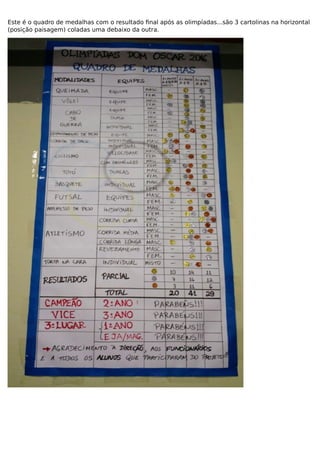 Este é o quadro de medalhas com o resultado final após as olimpíadas...são 3 cartolinas na horizontal
(posição paisagem) coladas uma debaixo da outra.
OLIMPÍADAS DOM OSCAR 2016
QUADRO DE MEDALHAS
MODALIDADES EQUIPES
QUEIMADA EQUIPE MASC
FEM.
VÔLEI EQUIPE
CABO DE GUERRA DUPLA
INDIVIDUAL
INDIVIDUAL
CICLISMO VELOCIDADE
COM OBSTÁCULOS
TOTÓ DUPLAS MASC
FEM.
BASQUETE INDIVIDUAL MASC
FEM.
FUTSAL EQUIPES MASC
FEM.
ARREMESSO DE PESO INDIVIDUAL MASC
FEM.
ATLETISMO CORRIDA CURTA MASC
FEM.
CORRIDA MÉDIA MASC
FEM.
CORRIDA LONGA MASC
REVEZAMENTO MASC
FEM.
TORTA NA CARA INDIVIDUAL MISTO
RESULTADOS PARCIAL 10 14 11
7 16 12
3 11 6
TOTAL 20 41 29
CAMPEÃO 2º ANO PARABÉNS!!!
VICE 3º ANO PARABÉNS!!!
3º LUGAR 1º ANO PARABÉNS!!!
EJA/MAG. PARABÉNS!!!
AGRADECIMENTO À DIREÇÃO, AOS FUNCIONÁRIOS
E A TODOS OS ALUNOS QUE PARTICIPARAM DO PROJETO